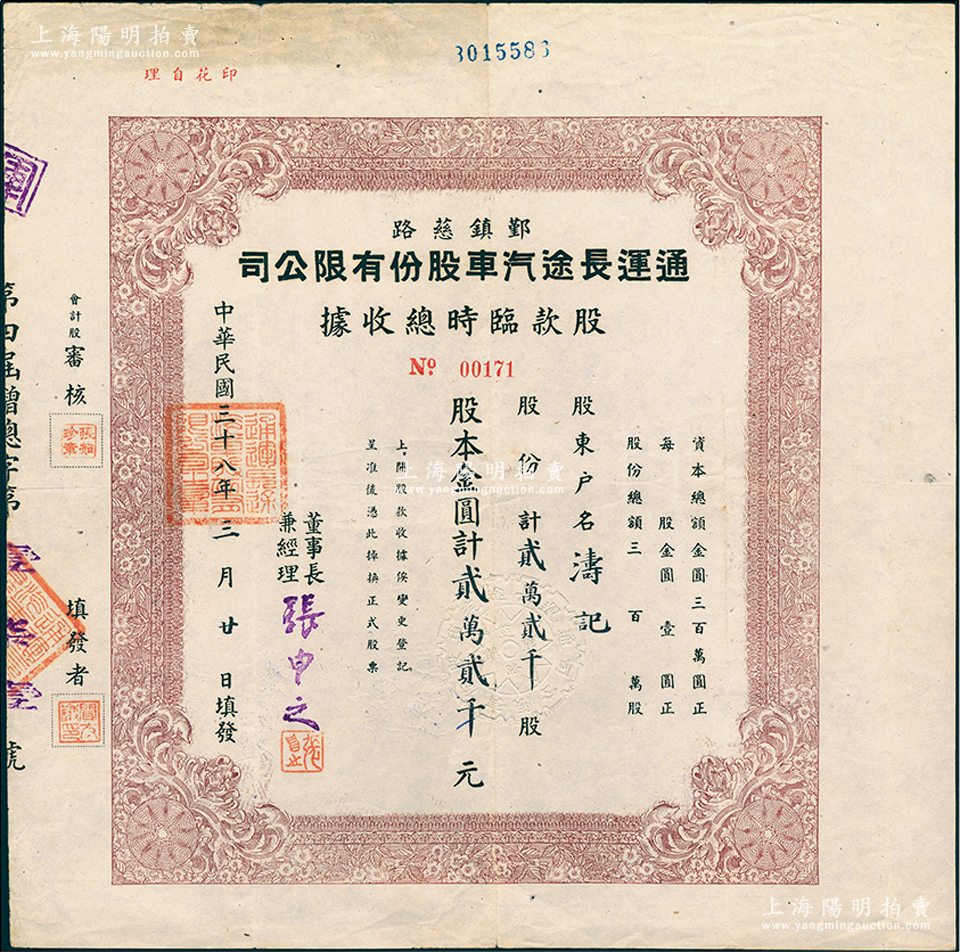 上海陽明拍賣
www.yangmingauction.com
3015583
印花自理
鄞鎮慈路
通運長途汽車股份有限公司
股款臨時總收據
No 00171
資本總額金圓三百萬圓正
每股金圓壹圓正
股份總額三百萬股
股東户名濤記
股份計貳萬貳千股
股本金圓計貳萬貳千元
上開股款收據俟變更登記
呈准後憑此掉換正式股票
董事長
兼經理
張申之
中華民國三十八年三月廿日填發
會計股審核
填發者
第四屆增總字第
號
上海陽明拍賣
www.yangmingauction.com
上海陽明拍賣
www.yangmingauction.com